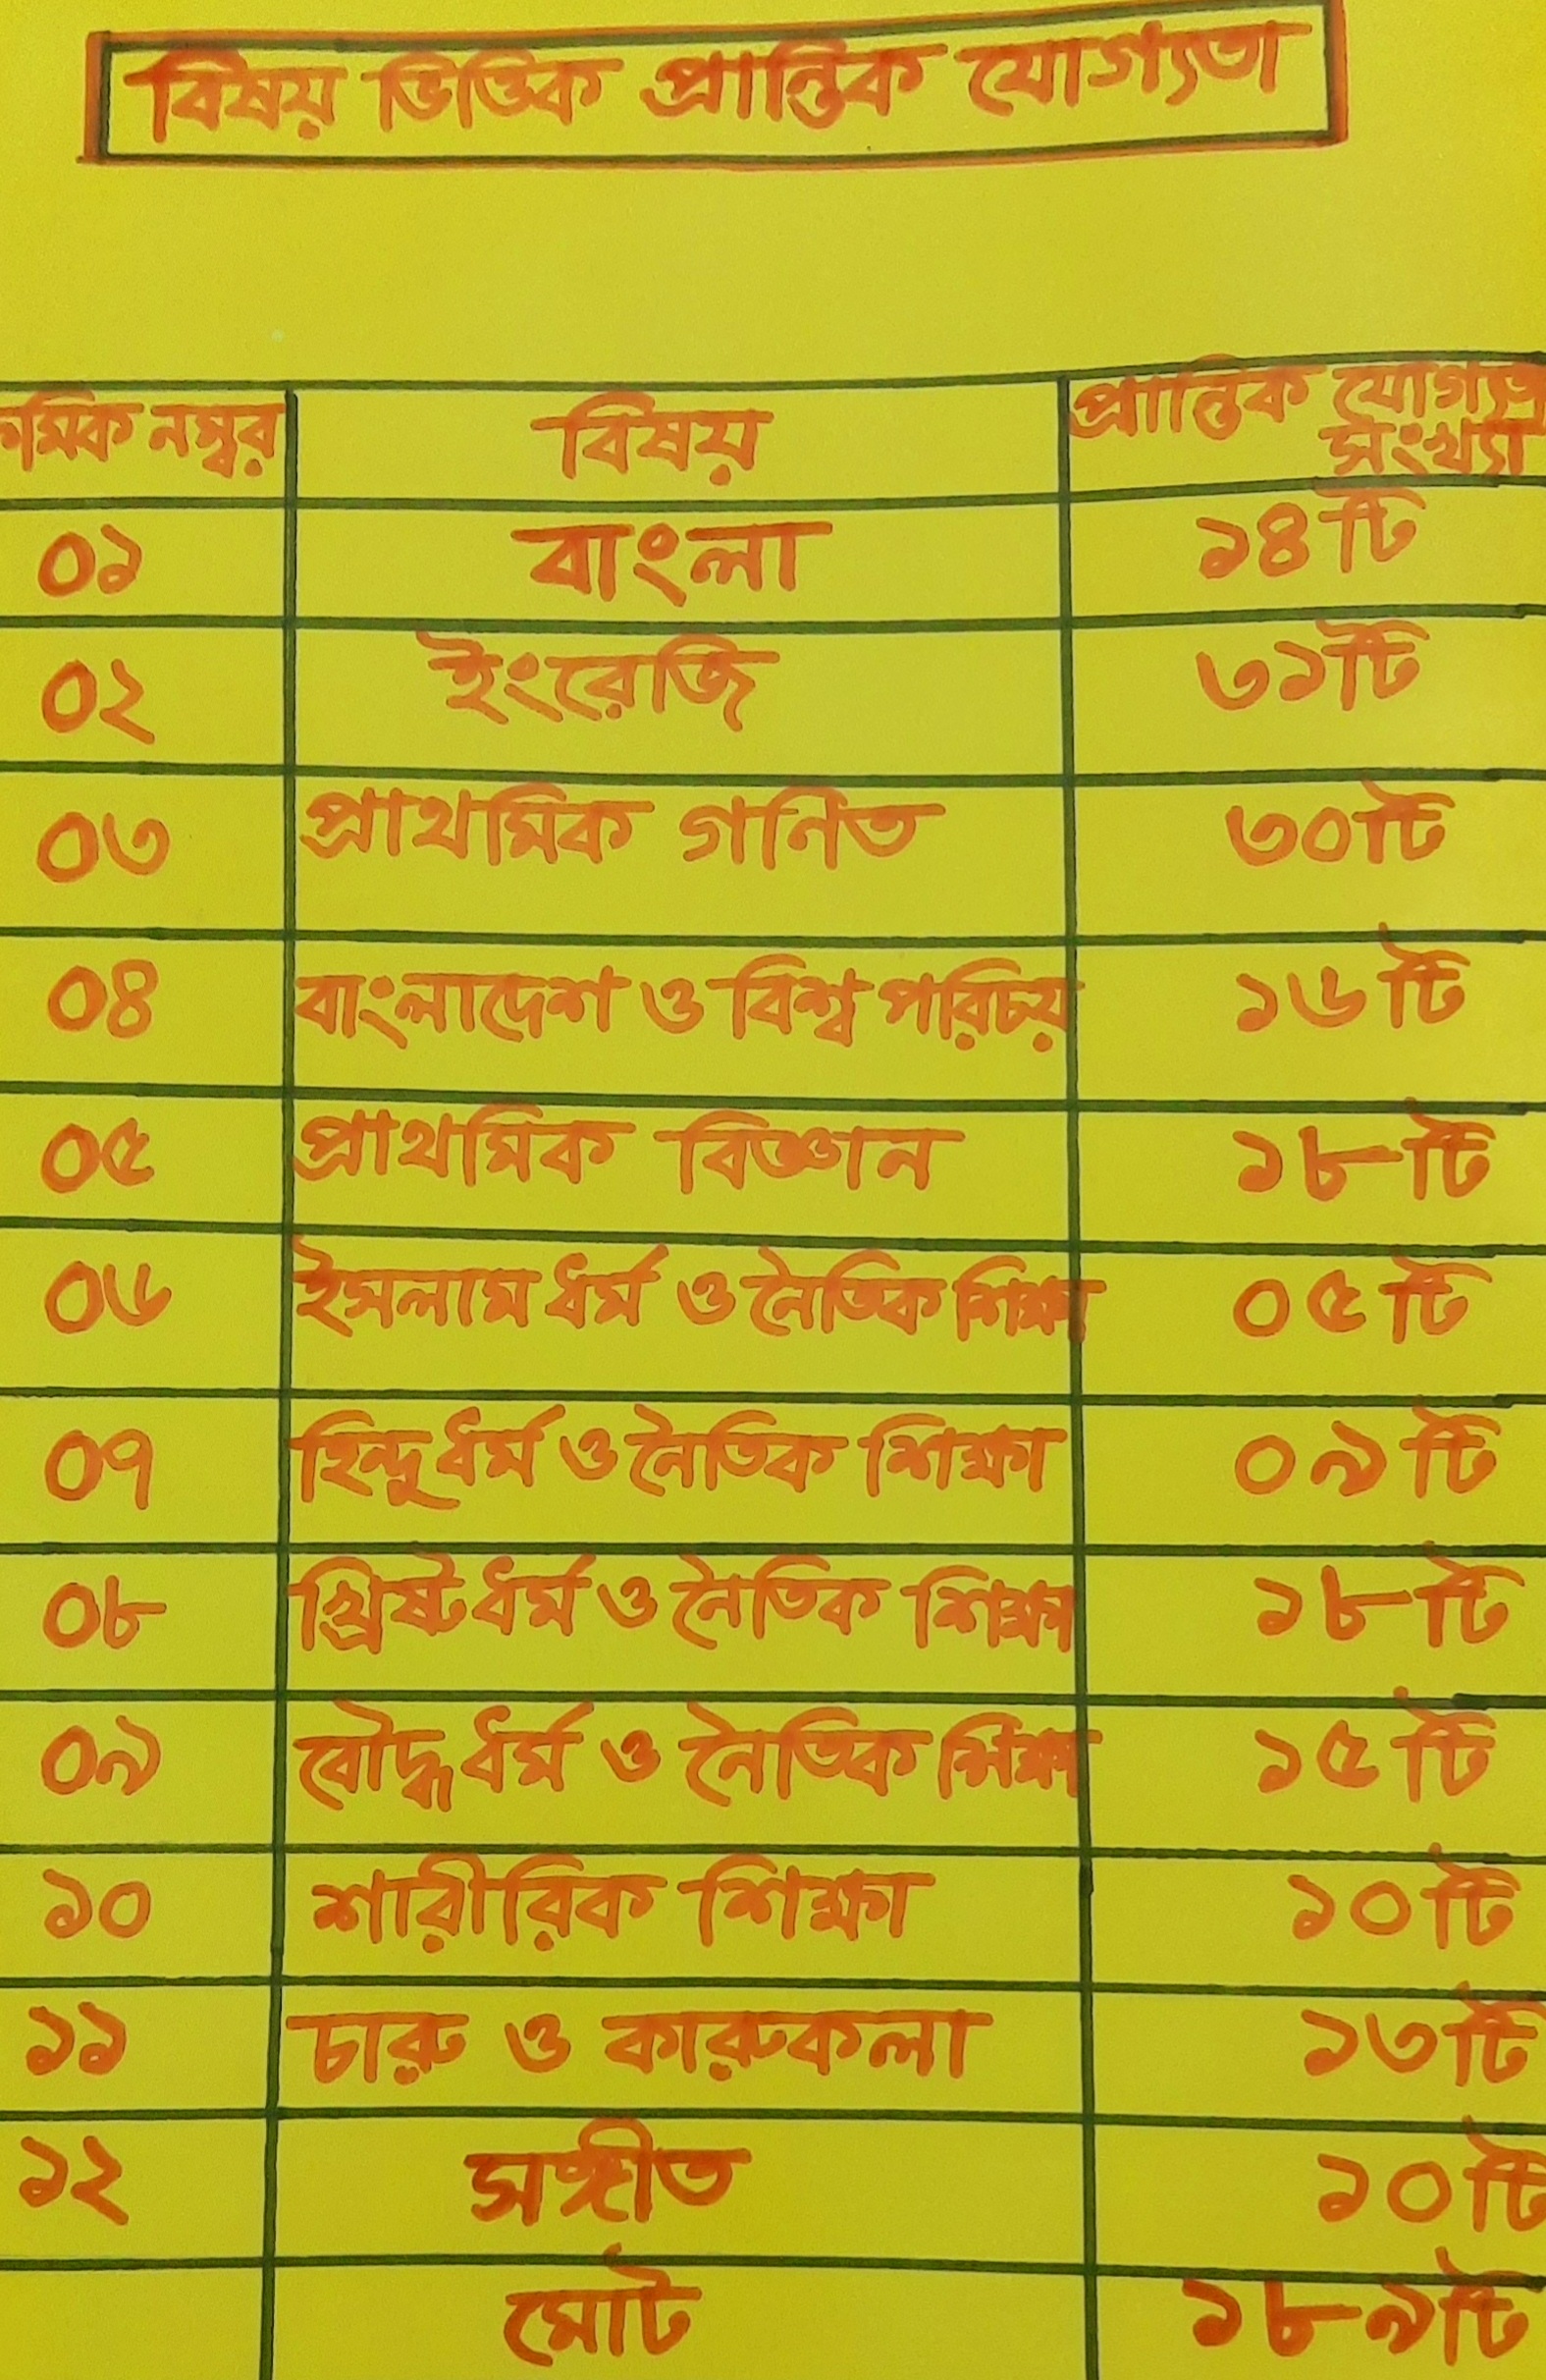 বিষয় ভিত্তিক প্রান্তিক যোগ্যতা
ক্রমিক নম্বর বিষয় প্রান্তিক যোগ্যতা
সংখ্যা
০১ বাংলা ১৪টি
০২ ইংরেজি ৩১টি
০৩ প্রাথমিক গনিত ৩০টি
০৪ বাংলাদেশ ও বিশ্ব পরিচয় ১৬টি
০৫ প্রাথমিক বিজ্ঞান ১৮টি
০৬ ইসলাম ধর্ম ও নৈতিক শিক্ষা ০৫টি
০৭ হিন্দু ধর্ম ও নৈতিক শিক্ষা ০৯টি
০৮ খ্রিষ্ট ধর্ম ও নৈতিক শিক্ষা ১৮টি
০৯ বৌদ্ধ ধর্ম ও নৈতিক শিক্ষা ১৫টি
১০ শারীরিক শিক্ষা ১০টি
১১ চারু ও কারুকলা ১৩টি
১২ সঙ্গীত ১০টি
মোট ১৮৯টি